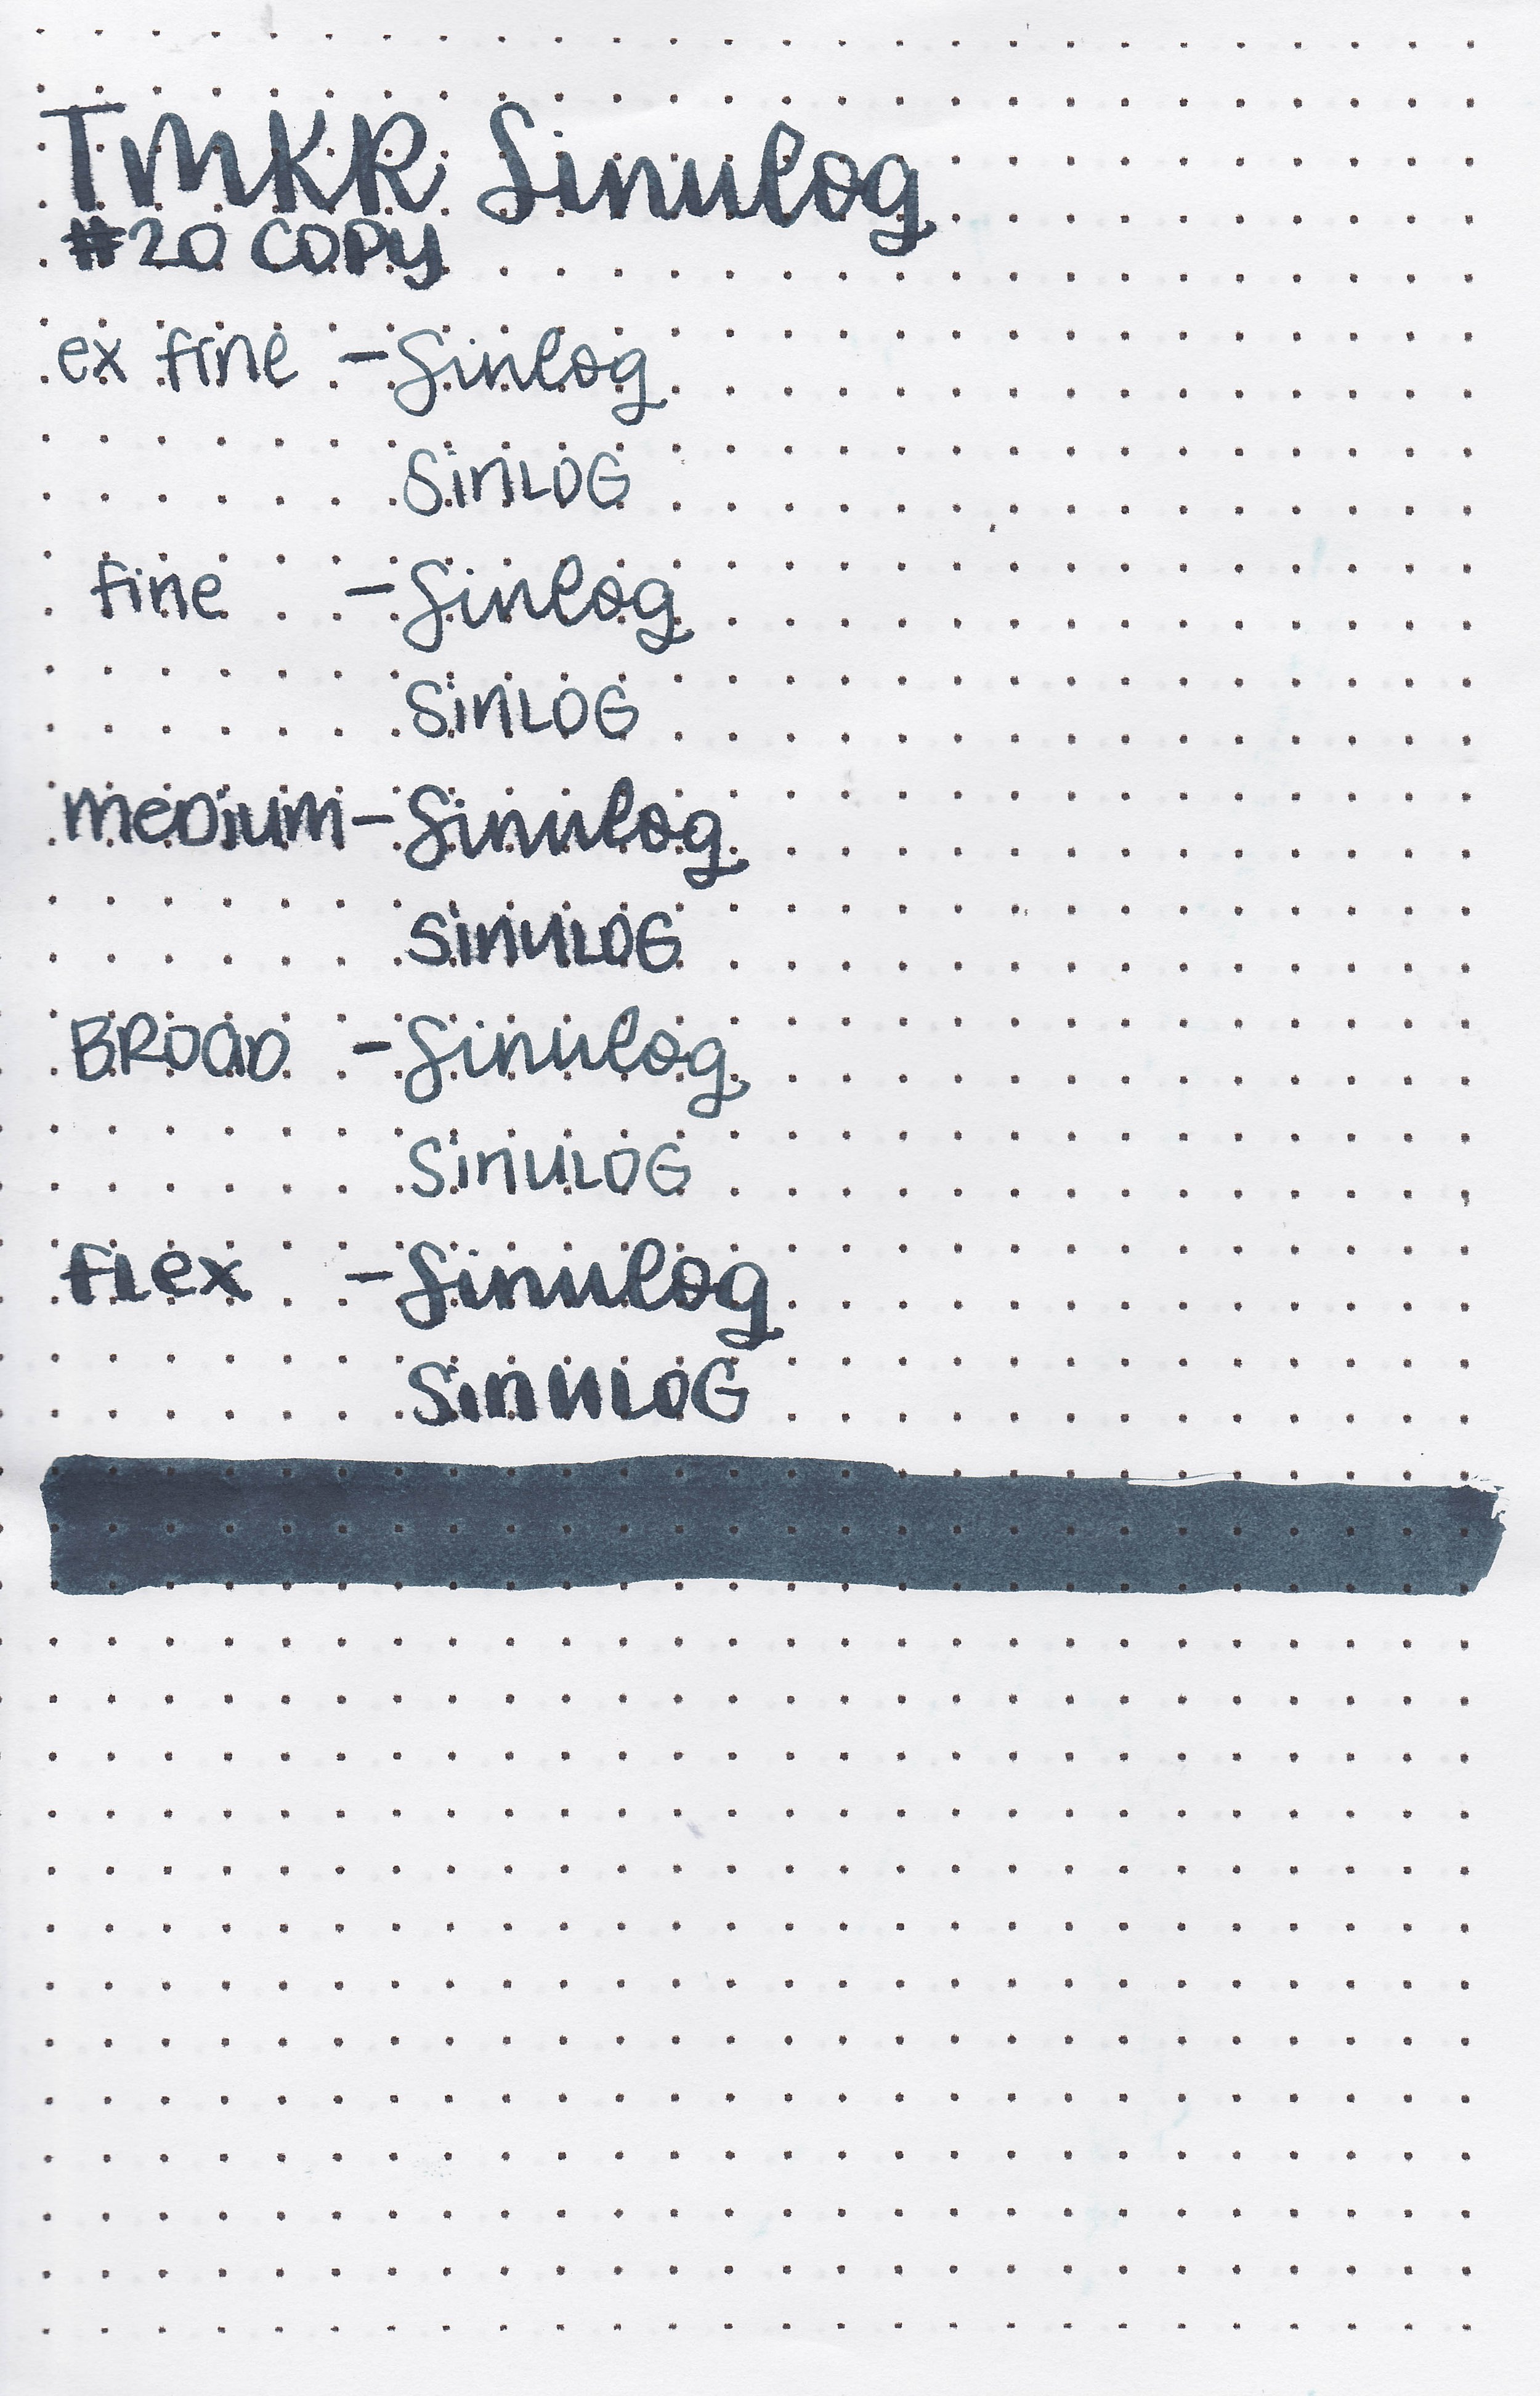 TMKR Sinulog
#20 COPY
ex fine - Sinlog
SinLOG
fine - Sinlog
SinLOG
meDium - Sinulog
SinuLOG
BROaD - Sinulog
SinuLOG
FLex - Sinulog
SinuLOG